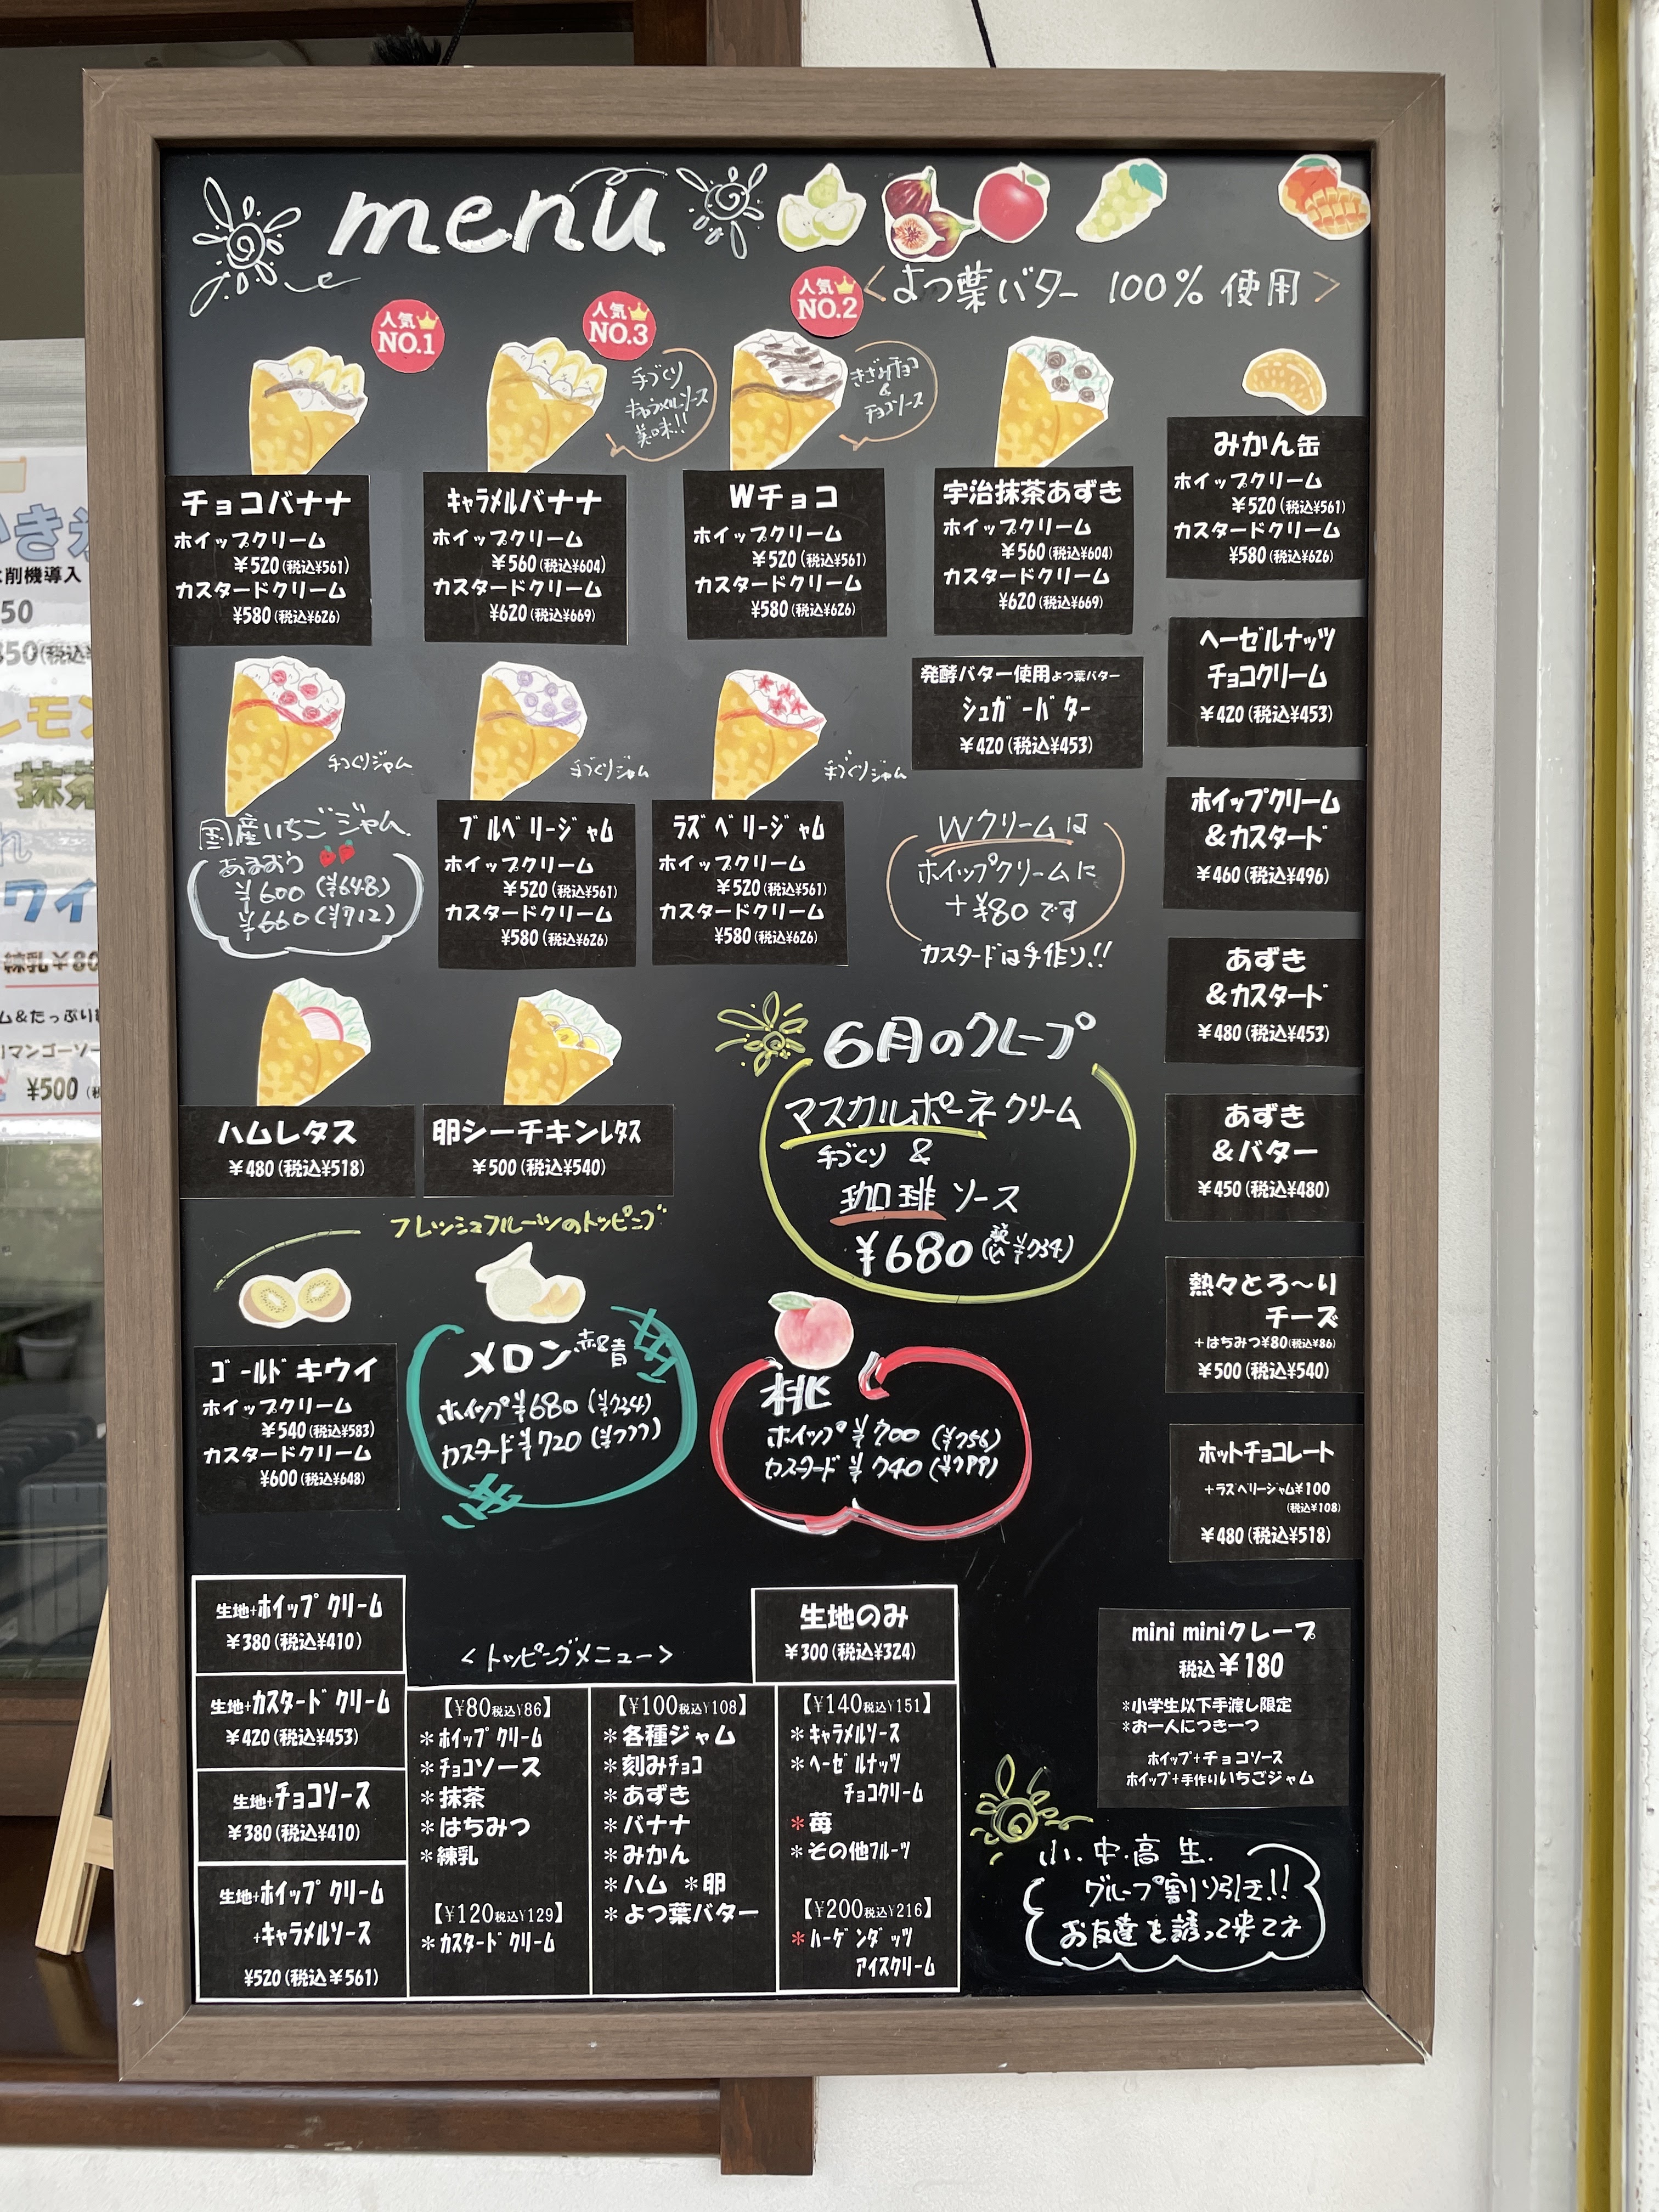 menu
<よつ葉バター 100% 使用>
人気
NO.1
人気
NO.3
手づくり
キャラメルソース
美味!!
人気
NO.2
きざみチョコ
&
チョコソース
チョコバナナ
ホイップクリーム
¥520(税込¥561)
カスタードクリーム
¥580(税込¥626)
キャラメルバナナ
ホイップクリーム
¥560(税込¥604)
カスタードクリーム
¥620(税込¥669)
Wチョコ
ホイップクリーム
¥520(税込¥561)
カスタードクリーム
¥580(税込¥626)
宇治抹茶あずき
ホイップクリーム
¥560(税込¥604)
カスタードクリーム
¥620(税込¥669)
みかん缶
ホイップクリーム
¥520(税込¥561)
カスタードクリーム
¥580(税込¥626)
手づくりジャム
国産いちごジャム
あまおう
¥600(¥648)
¥660(¥712)
手づくりジャム
ブルベリージャム
ホイップクリーム
¥520(税込¥561)
カスタードクリーム
¥580(税込¥626)
手づくりジャム
ラズベリージャム
ホイップクリーム
¥520(税込¥561)
カスタードクリーム
¥580(税込¥626)
発酵バター使用よつ葉バター
シュガーバター
¥420(税込¥453)
Wクリームは
ホイップクリームに
+¥80です
カスタードは手作り!!
ヘーゼルナッツ
チョコクリーム
¥420(税込¥453)
ホイップクリーム
&カスタード
¥460(税込¥496)
あずき
&カスタード
¥480(税込¥453)
あずき
&バター
¥450(税込¥480)
熱々とろ~り
チーズ
+はちみつ¥80(税込¥86)
¥500(税込¥540)
ホットチョコレート
+ラズベリージャム¥100
(税込¥108)
¥480(税込¥518)
ハムレタス
¥480(税込¥518)
卵シーチキンレタス
¥500(税込¥540)
6月のクレープ
マスカルポーネクリーム
手づくり &
珈琲ソース
¥680(税込¥734)
フレッシュフルーツのトッピング
ゴールドキウイ
ホイップクリーム
¥540(税込¥583)
カスタードクリーム
¥600(税込¥648)
メロン 赤&青
ホイップ¥680(¥734)
カスタード¥720(¥777)
桃
ホイップ¥700(¥756)
カスタード¥740(¥799)
生地+ホイップクリーム
¥380(税込¥410)
生地+カスタードクリーム
¥420(税込¥453)
生地+チョコソース
¥380(税込¥410)
生地+ホイップクリーム
+キャラメルソース
¥520(税込¥561)
<トッピングメニュー>
生地のみ
¥300(税込¥324)
【¥80税込¥86】
*ホイップクリーム
*チョコソース
*抹茶
*はちみつ
*練乳
【¥120税込¥129】
*カスタードクリーム
【¥100税込¥108】
*各種ジャム
*刻みチョコ
*あずき
*バナナ
*みかん
*ハム *卵
*よつ葉バター
【¥140税込¥151】
*キャラメルソース
*ヘーゼルナッツ
チョコクリーム
*苺
*その他フルーツ
【¥200税込¥216】
*ハーゲンダッツ
アイスクリーム
mini miniクレープ
税込¥180
*小学生以下手渡し限定
*お一人につき一つ
ホイップ+チョコソース
ホイップ+手作りいちごジャム
小.中.高生.
グループ割り引き!!
お友達を誘って来てネ
削機導入
50
抹茶
練乳¥80
マンゴーソー
¥500